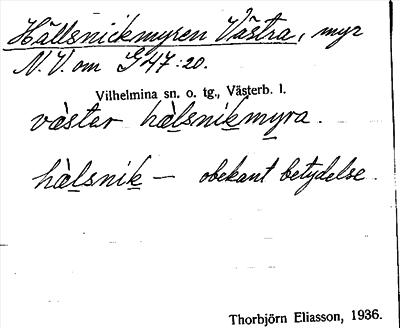 Hällsnickmyren Västra, myr
N.V. om G47:20.
Vilhelmina sn. o. tg., Västerb. l.
vàster hàlsnikmyra.
hàlsnik — obekant betydelse.
Thorbjörn Eliasson, 1936.